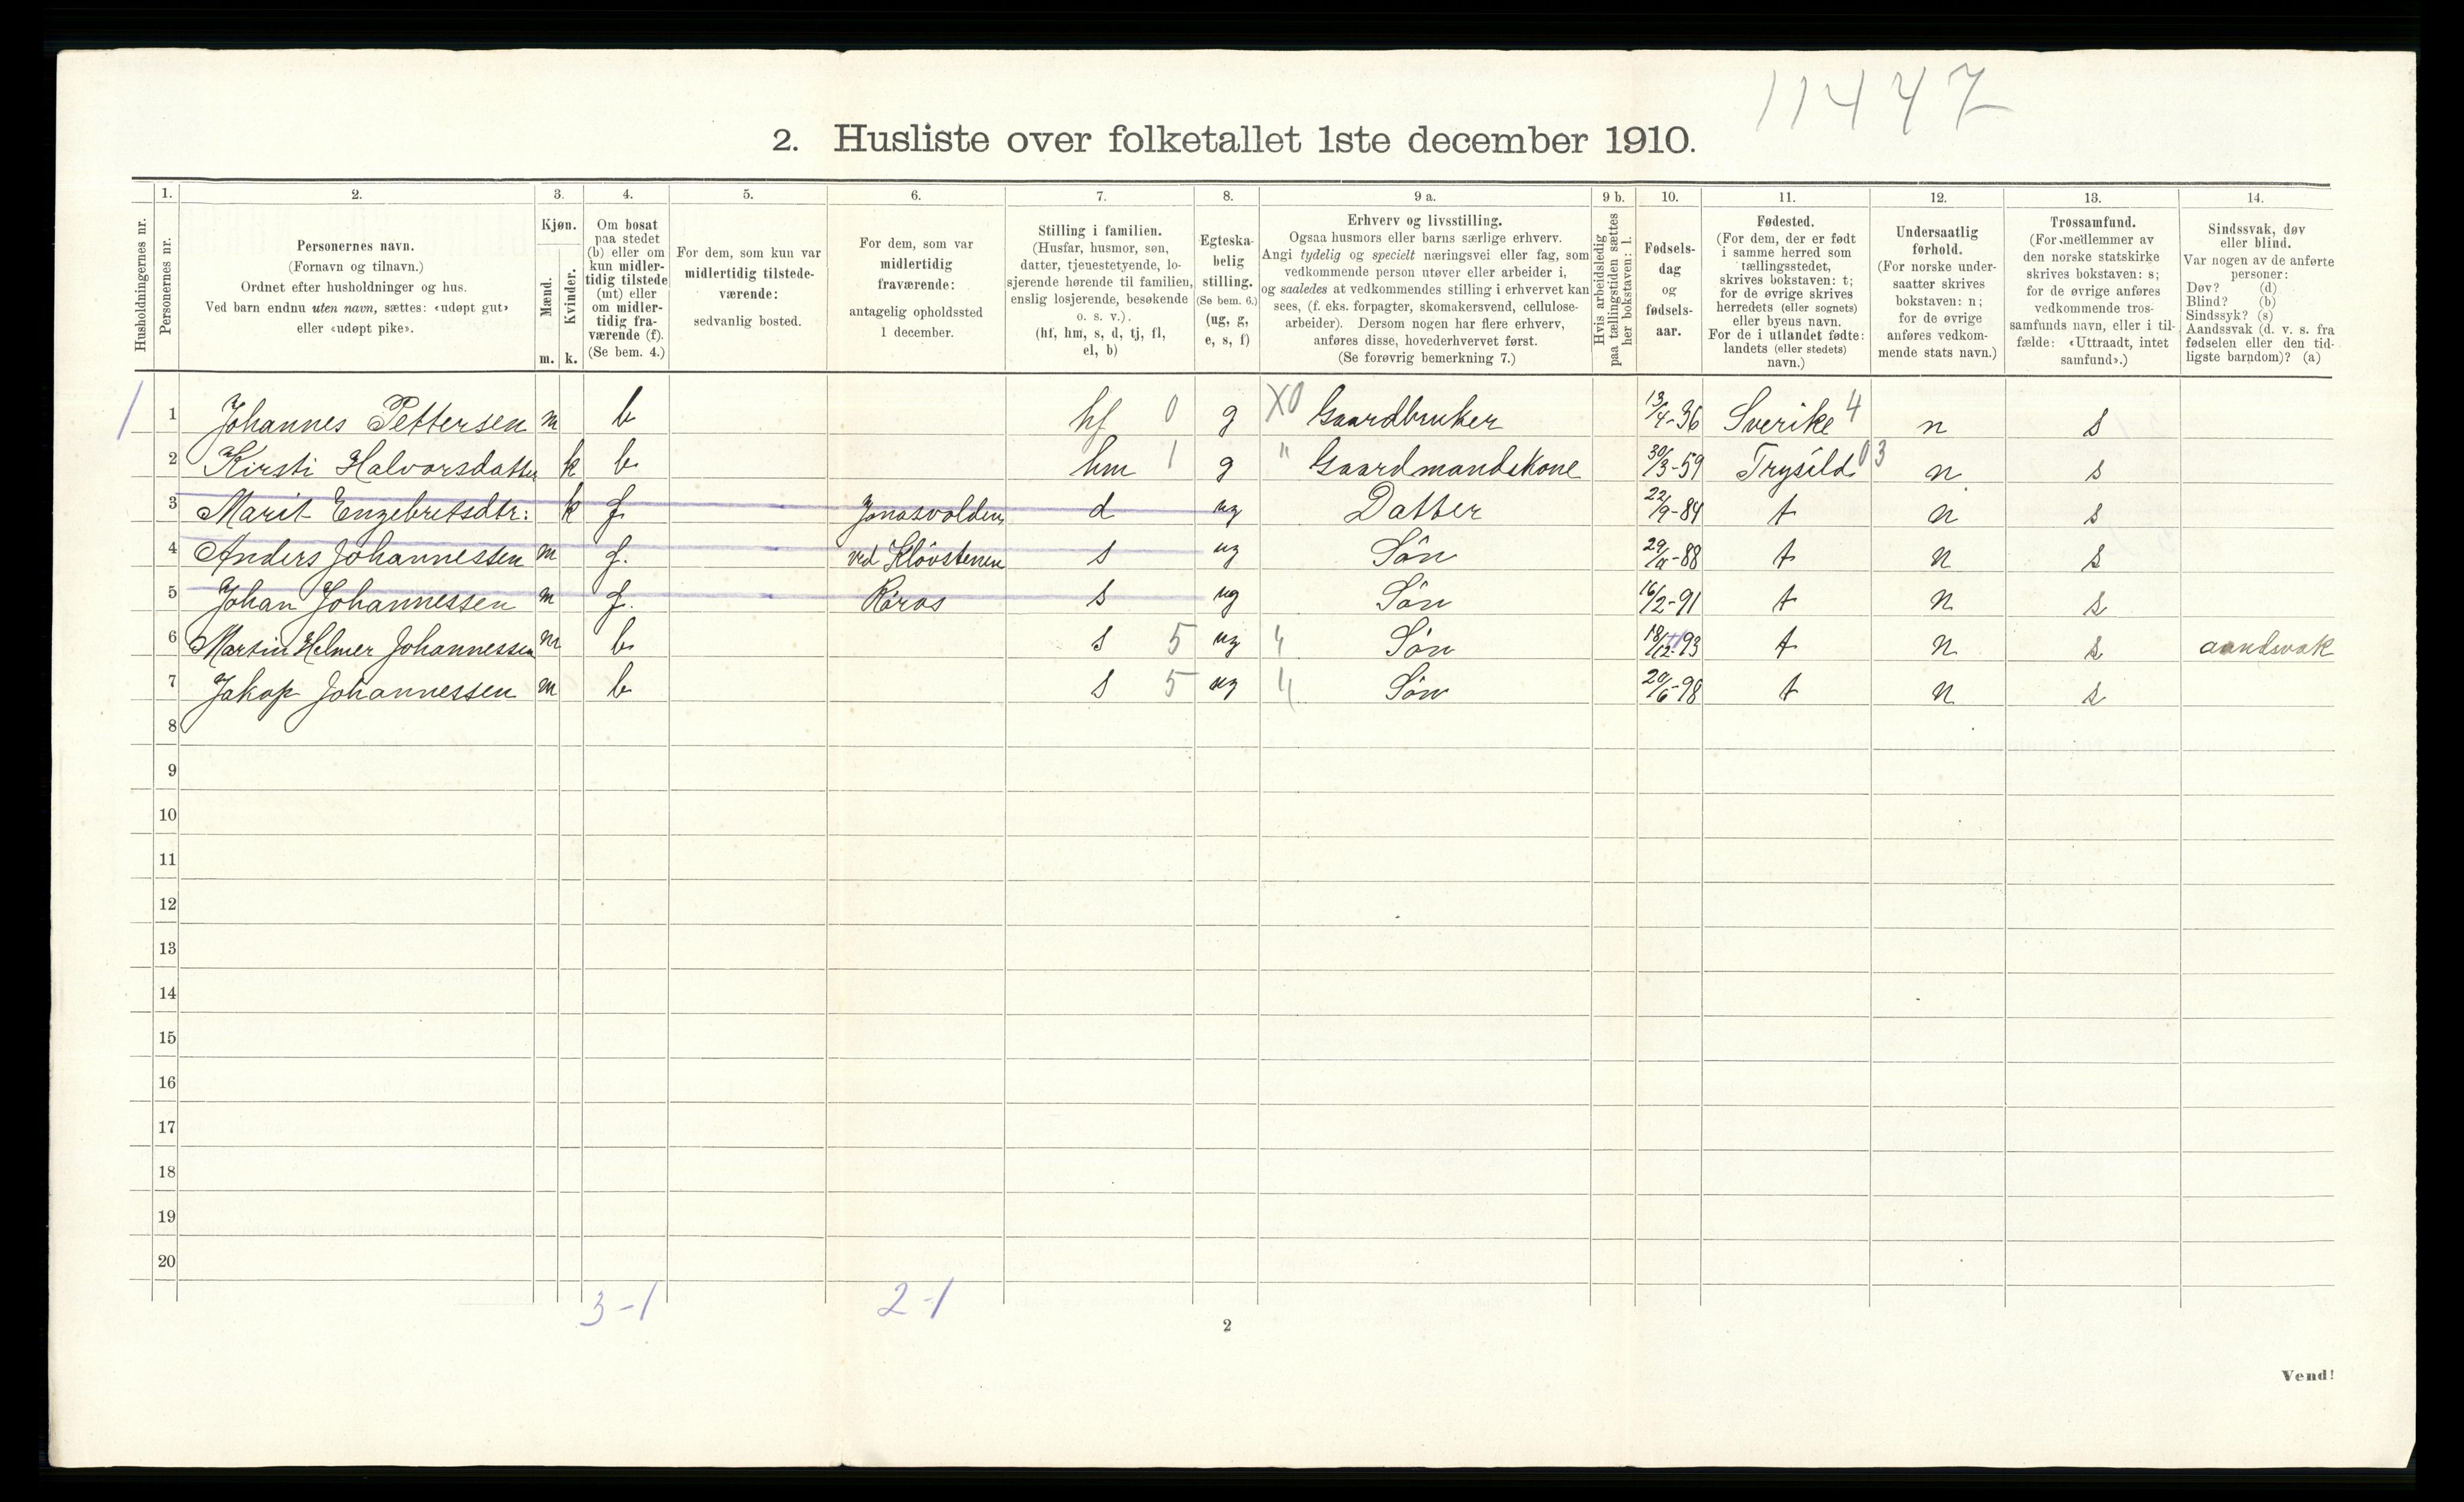 11447
2. Husliste over folketallet 1ste december 1910.
Husholdningernes nr.
1.
Personernes nr.
2.
Personernes navn.
(Fornavn og tilnavn.)
Ordnet efter husholdninger og hus.
Ved barn endnu uten navn, sættes: «udøpt gut»
eller «udøpt pike».
3.
Kjøn.
Mænd.
Kvinder.
m. k.
4.
Om bosat
paa stedet
(b) eller om
kun midler-
tidig tilstede
(mt) eller
om midler-
tidig fra-
værende (f).
(Se bem. 4.)
5.
For dem, som kun var
midlertidig tilstede-
værende:
sedvanlig bosted.
6.
For dem, som var
midlertidig
fraværende:
antagelig opholdssted
1 december.
7.
Stilling i familien.
(Husfar, husmor, søn,
datter, tjenestetyende, lo-
sjerende hørende til familien,
enslig losjerende, besøkende
o. s. v.).
(hf, hm, s, d, tj, fl,
el, b)
8.
Egteska-
belig
stilling.
(Se bem. 6.)
(ug, g,
e, s, f)
9 a.
Erhverv og livsstilling.
Ogsaa husmors eller barns særlige erhverv.
Angi tydelig og specielt næringsvei eller fag, som
vedkommende person utøver eller arbeider i,
og saaledes at vedkommendes stilling i erhvervet kan
sees, (f. eks. forpagter, skomakersvend, cellulose-
arbeider). Dersom nogen har flere erhverv,
anføres disse, hovederhvervet først.
(Se forøvrig bemerkning 7.)
9 b.
Hvis arbeidsledig
paa tællingstiden sættes
her bokstaven: l.
10.
Fødsels-
dag
og
fødsels-
aar.
11.
Fødested.
(For dem, der er født
i samme herred som
tællingsstedet,
skrives bokstaven: t;
for de øvrige skrives
herredets (eller sognets)
eller byens navn.
For de i utlandet fødte:
landets (eller stedets)
navn.)
12.
Undersaatlig
forhold.
(For norske under-
saatter skrives
bokstaven: n;
for de øvrige
anføres vedkom-
mende stats navn.)
13.
Trossamfund.
(For medlemmer av
den norske statskirke
skrives bokstaven: s;
for de øvrige anføres
vedkommende tros-
samfunds navn, eller i til-
fælde: «Uttraadt, intet
samfund».)
14.
Sindssvak, døv
eller blind.
Var nogen av de anførte
personer:
Døv? (d)
Blind? (b)
Sindssyk? (s)
Aandssvak (d. v. s. fra
fødselen eller den tid-
ligste barndom)? (a)
1 1 Johannes Pettersen m b hf 0 g X0 Gaardbruker 13/4-36 Sverike 4 n s
2 Kirsti Halvorsdatter k b hm 1 g " Gaardmandskone 30/3-59 Trysild 03 n s
3 Marit Engebretsdtr: k f Jonasvolden d ug Datter 22/9-84 t n s
4 Anders Johannessen m f. ved Klövstenen s ug Sön 29/ -88 t n s
5 Johan Johannessen m f. Röros s ug Sön 16/2-91 t n s
6 Martin Helmer Johannessen m b s 5 ug " Sön 18/12-93 t n s aandsvak
7 Jakop Johannessen m b s 5 ug " Sön 20/6-98 t n s
8
9
10
11
12
13
14
15
16
17
18
19
20
3-1 2-1
2
Vend!